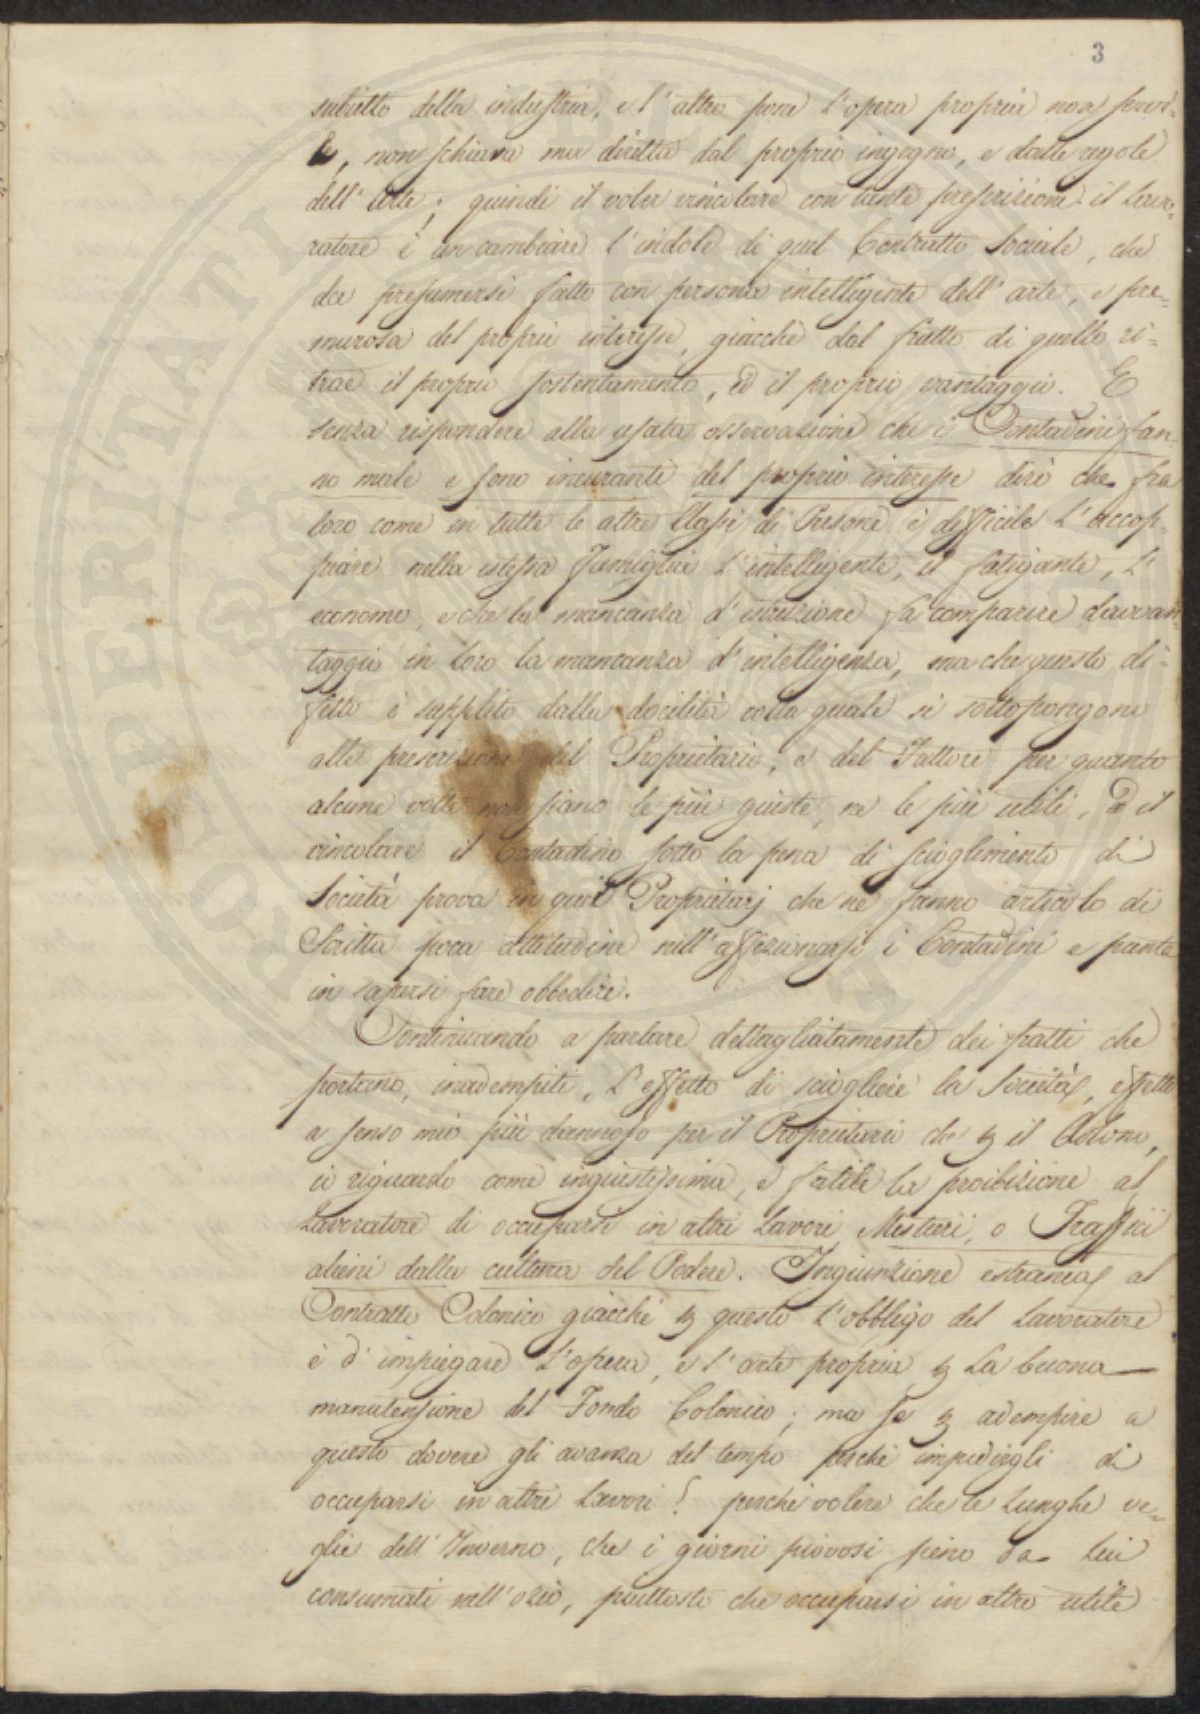 3
subietto della industria, e l'altro pone l'opera propria non servi-
le, non schiava ma diretta dal proprio ingegno, e dalle regole
dell'Arte; quindi il voler vincolare con tante prescrizioni il Lavo-
ratore è un cambiare l'indole di quel Contratto Sociale, che
dee presumersi fatto con persona intelligente dell'arte, e pre-
murosa del proprio interesse, giacchè dal frutto di quello ri-
trae il proprio sostentamento, ed il proprio vantaggio. E
senza rispondere alla usata osservazione che i Contadini fan-
no male e sono incuranti del proprio interesse dirò che fra
loro come in tutte le altre Classi di Persone è difficile l'accop-
piare nella istessa Famiglia l'intelligente, il fatigante, l'
economo, e che la mancanza d'istruzione fa comparire d'avvan-
taggio in loro la mancanza d'intelligenza, ma che questo di-
fetto è supplito dalla docilità colla quale si sottopongono
alle prescrizioni del Proprietario, e del Fattore per quanto
alcune volte non siano le più giuste, ne le più utili, ed il
vincolare il Contadino sotto la pena di scioglimento di
Società prova in quei Proprietarj che ne fanno articolo di
Scritta poca attitudine nell'affezionarsi i Contadini e
in sapersi fare obbedire.
Continuando a parlare dettagliatamente dei fatti che
portano, inadempiti, l'effetto di sciogliere la Società, effetto
a senso mio più dannoso per il Proprietario che ꝑ il Colono,
io riguardo come ingiustissima, e futile la proibizione al
Lavoratore di occuparsi in altri Lavori Mestieri, o Traffici
alieni dalla cultura del Podere. Ingiunzione estranea al
Contratto Colonico giacchè ꝑ questo l'obbligo del Lavoratore
è d'impiegare l'opera, e l'arte propria ꝑ la buona
manutensione del Fondo Colonico; ma se ꝑ adempire a
questo dovere gli avanza del tempo perchè impedirgli di
occuparsi in altri Lavori? perchè volere che le Lunghe ve-
glie dell'Inverno, che i giorni piovosi sieno da lui
consumati nell'ozio, piuttosto che occuparsi in altro utile
PERITATI PUBLICAE